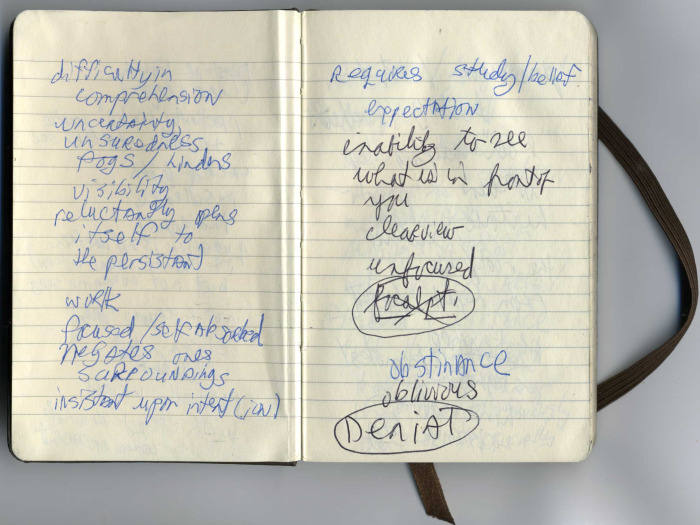 difficulty in
comprehension
uncertainty
unsuredness
fogs / hinders
visibility
reluctantly opens
itself to
the persistant
work
focused / self absorbed
negates ones
surroundings
insistant upon intent (ion)
Requires study/belief
expectation
inability to see
what is in front of
you
clearview
unfocused
obstinance
oblivious
Denial